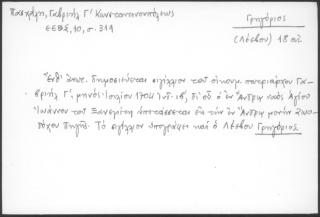 Πασχάλη, Γαβριήλ Γ' Κωνσταντινουπόλεως
ΕΕΒΣ, 10, σ. 319
Γρηγόριος
(Λέσβου) 18 αἰ
Ἔνθ' ἀνωτ. δημοσιεύεται σιγίλλιον τοῦ οἰκουμ. πατριάρχου Γα-
βριήλ Γ', μηνός Ἰουλίου 1704 ἰνδ. ιβ', δι' οὗ ὁ ἐν Ἄνδρῳ ναός Ἁγίου
Ἰωάννου τοῦ ὑποτάσσεται εἰς τήν ἐν Ἄνδρῳ μονήν Ζωο-
δόχου Πηγῆς. Τό σιγίλλιον ὑπογράφει καί ὁ Λέσβου Γρηγόριος.